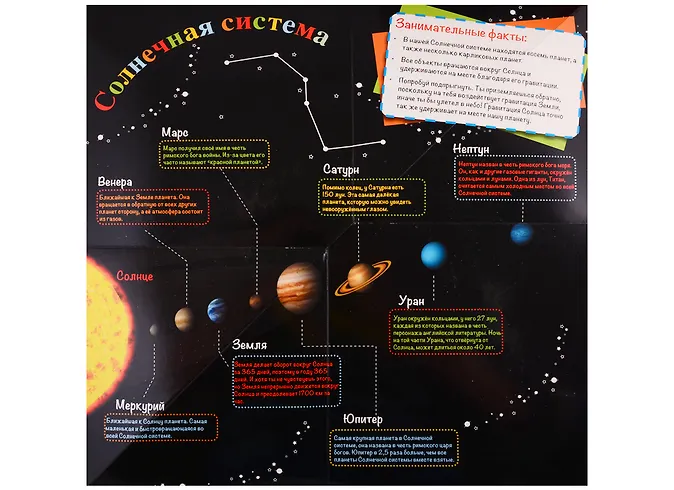 Солнечная система
Занимательные факты:
• В нашей Солнечной системе находятся восемь планет, а
также несколько карликовых планет.
• Все объекты вращаются вокруг Солнца и
удерживаются на месте благодаря его гравитации.
• Попробуй подпрыгнуть. Ты приземляешься обратно,
поскольку на тебя воздействует гравитация Земли,
иначе ты бы улетел в небо! Гравитация Солнца точно
так же удерживает на месте нашу планету.
Марс
Марс получил своё имя в честь
римского бога войны. Из-за цвета его
часто называют «красной планетой».
Нептун
Нептун назван в честь римского бога моря.
Он, как и другие газовые гиганты, окружён
кольцами и лунами. Одна из лун, Титан,
считается самым холодным местом во всей
Солнечной системе.
Сатурн
Помимо колец, у Сатурна есть
150 лун. Эта самая далёкая
планета, которую можно увидеть
невооружённым глазом.
Венера
Ближайшая к Земле планета. Она
вращается в обратную от всех других
планет сторону, а её атмосфера состоит
из газов.
Солнце
Уран
Уран окружён кольцами, у него 27 лун,
каждая из которых названа в честь
персонажа английской литературы. Ночь
на той части Урана, что отвёрнута от
Солнца, может длиться около 40 лет.
Земля
Земля делает оборот вокруг Солнца
за 365 дней, поэтому в году 365
дней. И хотя ты не чувствуешь этого,
но Земля непрерывно движется вокруг
Солнца и преодолевает 1700 км за
час.
Меркурий
Ближайшая к Солнцу планета. Самая
маленькая и быстровращающаяся во
всей Солнечной системе.
Юпитер
Самая крупная планета в Солнечной
системе, она названа в честь римского царя
богов. Юпитер в 2,5 раза больше, чем все
планеты Солнечной системы вместе взятые.